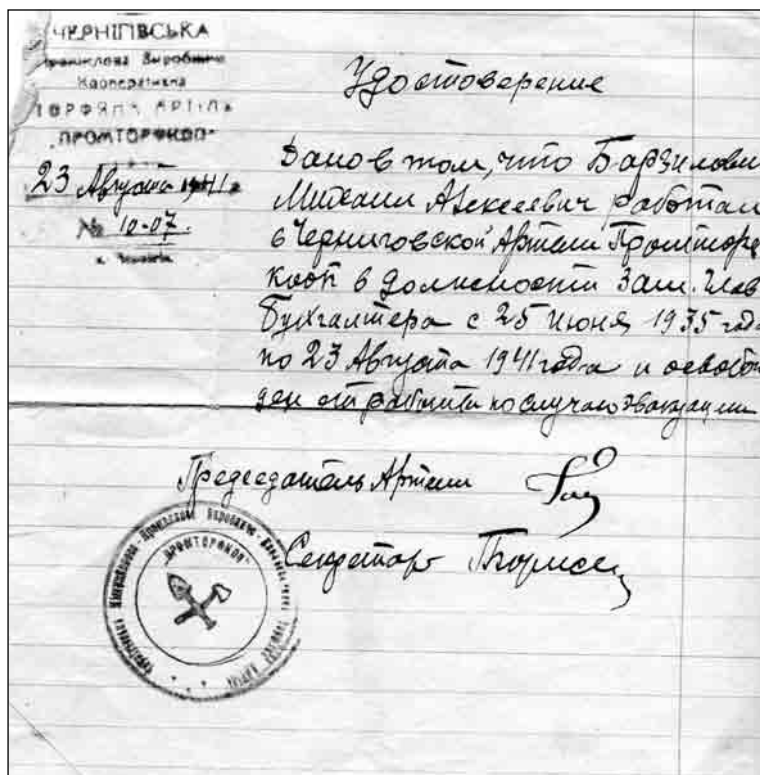 ЧЕРНІГІВСЬКА
Кооперативна
ТОРФЯНА АРТІЛЬ
"ПРОМТОРФКОП"
23 Августа 1941
№ 10-07.
Удостоверение
Дано в том, что Барзилови
Михаил Алексеевич работал
в Черниговской Артели Промторф
кооп в должности Зам. Глав
Бухгалтера с 25 июня 1935 года
по 23 Августа 1941 года и освобож
ден от работы по случаю эвакуации
Председатель Артели
Секретарь
"ПРОМТОРФКОП"